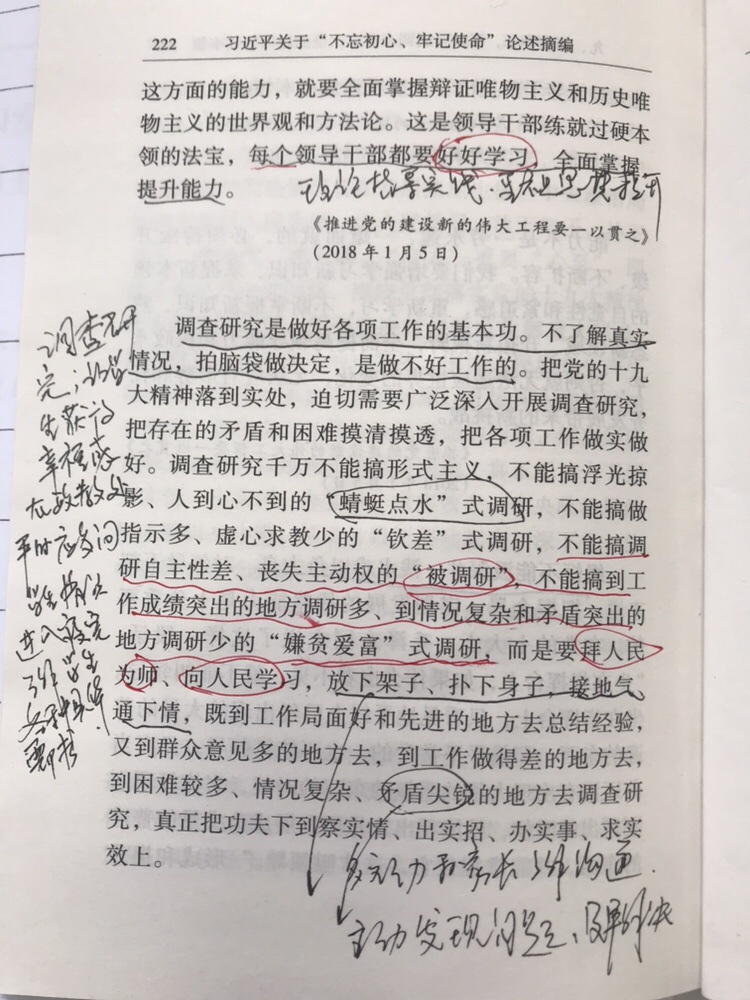 222 习近平关于“不忘初心、牢记使命”论述摘编
这方面的能力，就要全面掌握辩证唯物主义和历史唯
物主义的世界观和方法论。这是领导干部练就过硬本
领的法宝，每个领导干部都要好好学习、全面掌握、
提升能力。
理论指导实践
《推进党的建设新的伟大工程要一以贯之》
（2018年1月5日）
调查研究是做好各项工作的基本功。不了解真实
情况，拍脑袋做决定，是做不好工作的。把党的十九
大精神落到实处，迫切需要广泛深入开展调查研究，
把存在的矛盾和困难摸清摸透，把各项工作做实做
好。调查研究千万不能搞形式主义，不能搞浮光掠
影、人到心不到的“蜻蜓点水”式调研，不能搞做
指示多、虚心求教少的“钦差”式调研，不能搞调
研自主性差、丧失主动权的“被调研”，不能搞到工
作成绩突出的地方调研多、到情况复杂和矛盾突出的
地方调研少的“嫌贫爱富”式调研，而是要拜人民
为师、向人民学习，放下架子、扑下身子，接地气
通下情，既到工作局面好和先进的地方去总结经验，
又到群众意见多的地方去，到工作做得差的地方去，
到困难较多、情况复杂、矛盾尖锐的地方去调查研
究，真正把功夫下到察实情、出实招、办实事、求实
效上。
调查研
究，让学
生获得
幸福感
平时应多问
学生情况
进入
学生
多主动和家长 沟通
主动发现问题，及早解决